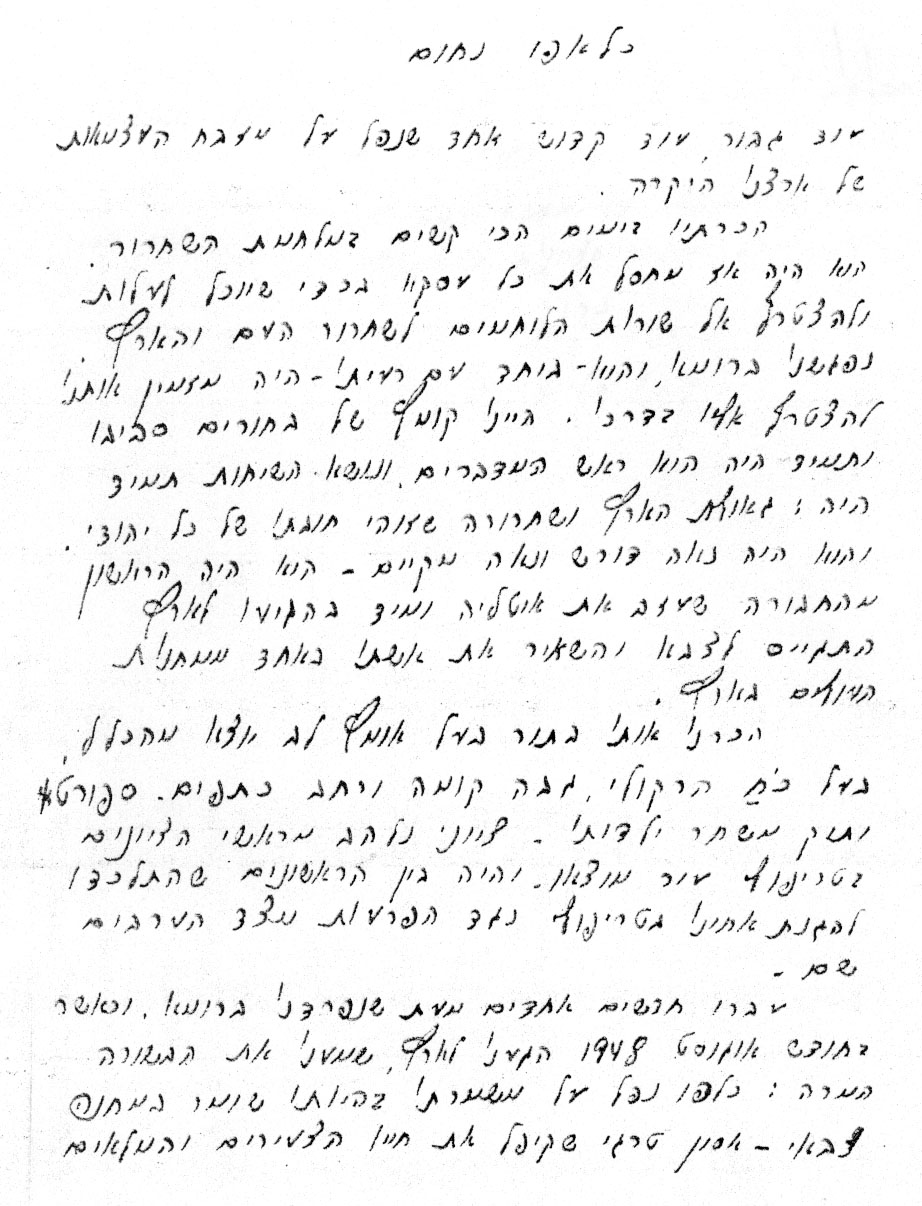 כלאפו נחום
עוד גבור, עוד קדוש אחד שנפל על מזבח העצמאות
של ארצנו היקרה.
הכרתיו בימים הכי קשים במלחמת השחרור.
הוא היה אז מחסל את כל עסקיו בכדי שיוכל לעלות
ולהצטרף אל שורות הלוחמים לשחרור העם והארץ.
נפגשנו ברומא, והוא - ביחד עם רעיתו - היה מזמין אותנו
להצטרף אליו בדרכו. היינו קומץ של בחורים סביבו
ותמיד היה הוא ראש המדברים, ונושא השיחות תמיד
היה: גאולת הארץ ושחרורה שזוהי חובתו של כל יהודי.
והוא היה נאה דורש ונאה מקיים - הוא היה הראשון
מהחבורה שעזב את איטליה ומיד בהגיעו לארץ
התגייס לצבא והשאיר את אשתו באחד ממחנות
העולים בארץ.
הכרנו אותו בתור בעל אומץ לב יוצא מהכלל,
בעל כֹּחַ הרקולי, גבה קומה ורחב כתפים. ספורטאי
ותיק משחר ילדותו - ציוני נלהב מראשי הציונים
בטריפולי עיר מוצאו. והיה בין הראשונים שהתלכדו
להגנת אחינו בטריפולי נגד הפרעות מצד הערבים
שם -
עברו חדשים אחדים מעת שנפרדנו ברומא, וכאשר
בחודש אוגוסט 1948 הגענו לארץ, שמענו את הבשורה
המרה: כלפו נפל על משמרתו בהיותו שומר במחנה
צבאי - אסון טרגי שקיפל את חייו הצעירים והמלאים